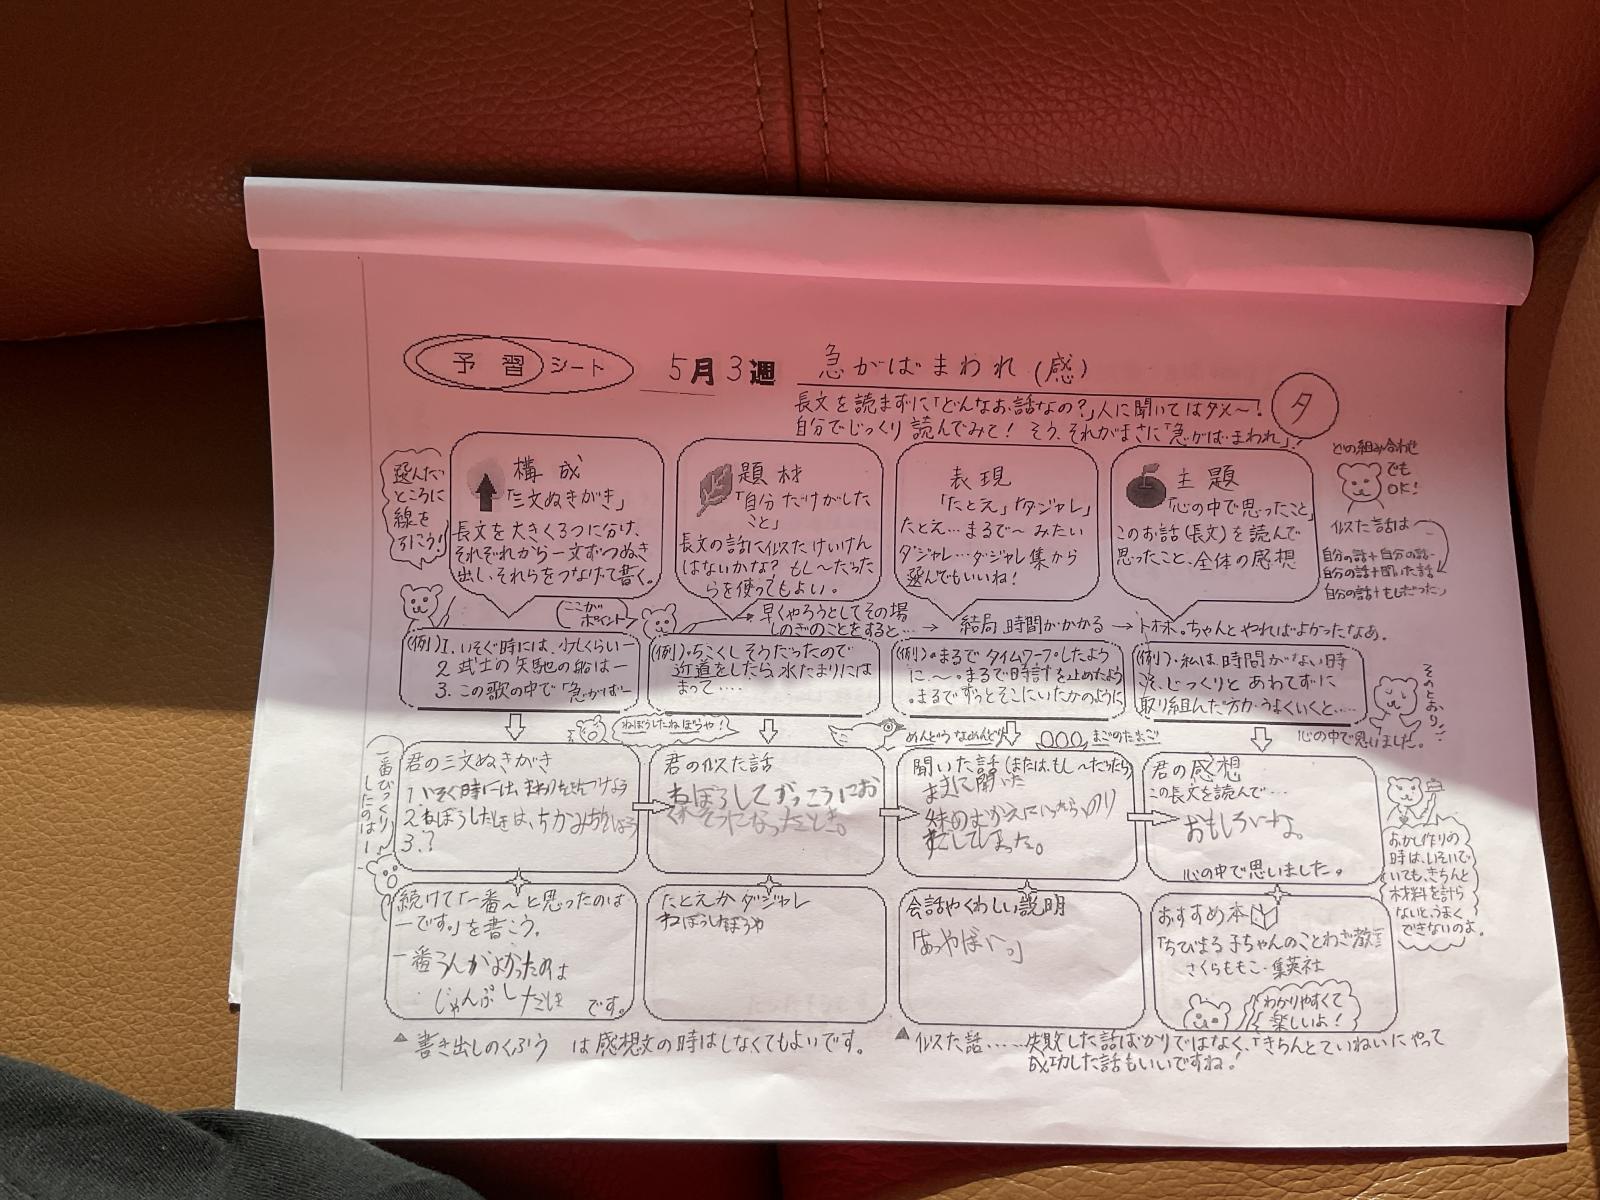 予習シート 5月3週 急がばまわれ(感)
タ
長文を読まずに「どんなお話なの?」人に聞いてはダメ〜!
自分でじっくり読んでみて! そう、それがまさに「急がばまわれ」!
選んだ
ところに
線を
引こう!
構成
「三文ぬきがき」
長文を大きく3つに分け、
それぞれから一文ずつぬき
出し、それらをつなげて書く。
題材
「自分だけがした
こと」
長文の話に似たけいけん
はないかな? もし〜だった
らを使ってもよい。
表現
「たとえ」「ダジャレ」
たとえ…まるで〜みたい
ダジャレ…ダジャレ集から
選んでもいいね!
主題
「心の中で思ったこと」
このお話(長文)を読んで
思ったこと、全体の感想
どの組み合わせ
でも
OK!
似た話は
自分の話+自分の話
自分の話+聞いた話
自分の話+もしだったら
ここが
ポイント
早くやろうとしてその場
しのぎのことをすると… → 結局、時間がかかる → トホホ。ちゃんとやればよかったなあ。
(例)1. いそぐ時には、少しくらい―
2. 武士の矢馳の船は―
3. この歌の中で「急がば―
(例)・ちこくしそうだったので
近道をしたら、水たまりには
まって….
(例)・まるでタイムワープしたよう
に、〜。・まるで時計を止めたよう
・まるでずっとそこにいたかのように
(例)・私は、時間がない時
こそ、じっくりとあわてずに
取り組んだ方がうまくいくと….
心の中で思いました。
そのとおり
ねぼうしたねぼうや!
めんどうなめんどり
まごのたまご
一番びっくり
したのは―
君の三文ぬきがき
1.いそぐ時には、まわりをきをつけよう
3.?
君の似た話
ねぼうしてがっこうにお
くれそうになったとき。
聞いた話(または、もし〜だったら)
ままに聞いた
妹のむかえにいったら、のり
すごしてしまった。
君の感想
この長文を読んで…
おもしろいな。
心の中で思いました。
おかし作りの
時は、いそいで
いても、きちんと
材料を計ら
ないと、うまく
できないのよ。
続けて「一番〜と思ったのは
―です。」を書こう。
一番うんがよかったのは
です。
たとえかダジャレ
ねぼうしたねぼうや
会話やくわしい説明
「あ、やばいっ」
おすすめ本
「ちびまる子ちゃんのことわざ教室」
さくらももこ・集英社
わかりやすくて
楽しいよ!
▲書き出しのくふう は感想文の時はしなくてもよいです。
▲似た話……失敗した話ばかりではなく、「きちんとていねいにやって
成功した話もいいですね!